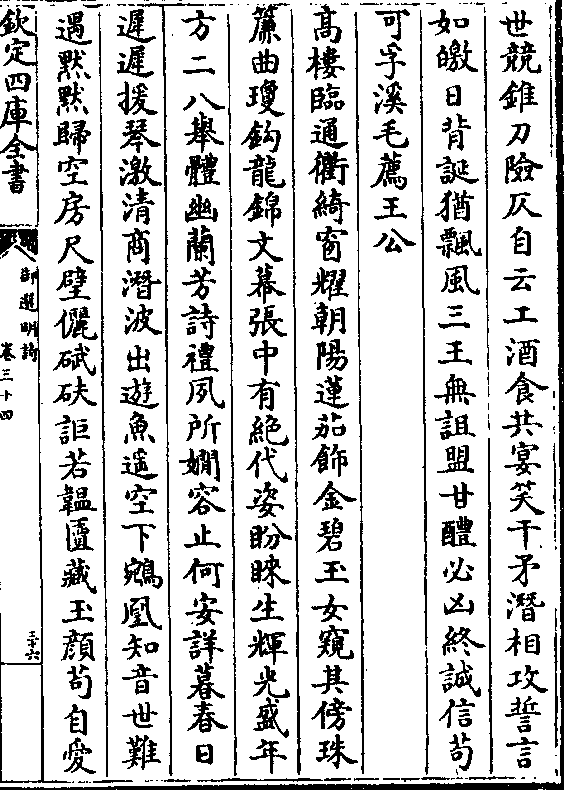 世競錐刀險仄自云工酒食共宴笑干矛潛相攻誓言
如皦日背誕猶飄風三王無詛盟甘醴必凶終誠信苟
可孚溪毛薦王公
髙樓臨通衢綺窗耀朝陽蓮茄飾金碧玉女窺其傍珠
簾曲瓊鈎龍錦文幕張中有絶代姿盼睞生輝光盛年
方二八舉體幽蘭芳詩禮夙所嫺容止何安詳暮春日
遲遲援琴激清商潛波出遊魚遥空下鵷凰知音世難
遇黙黙歸空房尺璧儷碔砆詎若韞匵藏玉顔苟自愛
欽定四庫全書
御選明詩
卷三十四
三十六